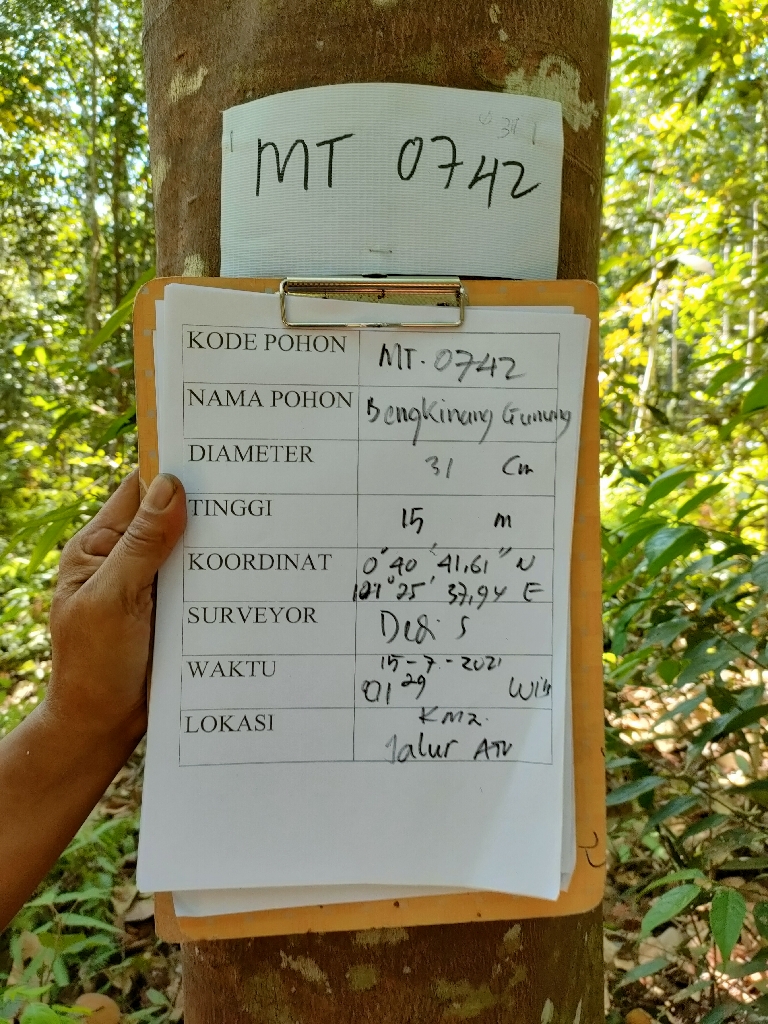 MT 0742
KODE POHON MT. 0742
NAMA POHON Bengkinang Gunung
DIAMETER 31 Cm
TINGGI 15 m
KOORDINAT 0° 40' 41,61" N
101° 25' 37,94 E
SURVEYOR Dedi S
WAKTU 15-7-2021
01 29 Wib
LOKASI
Jalur ATV